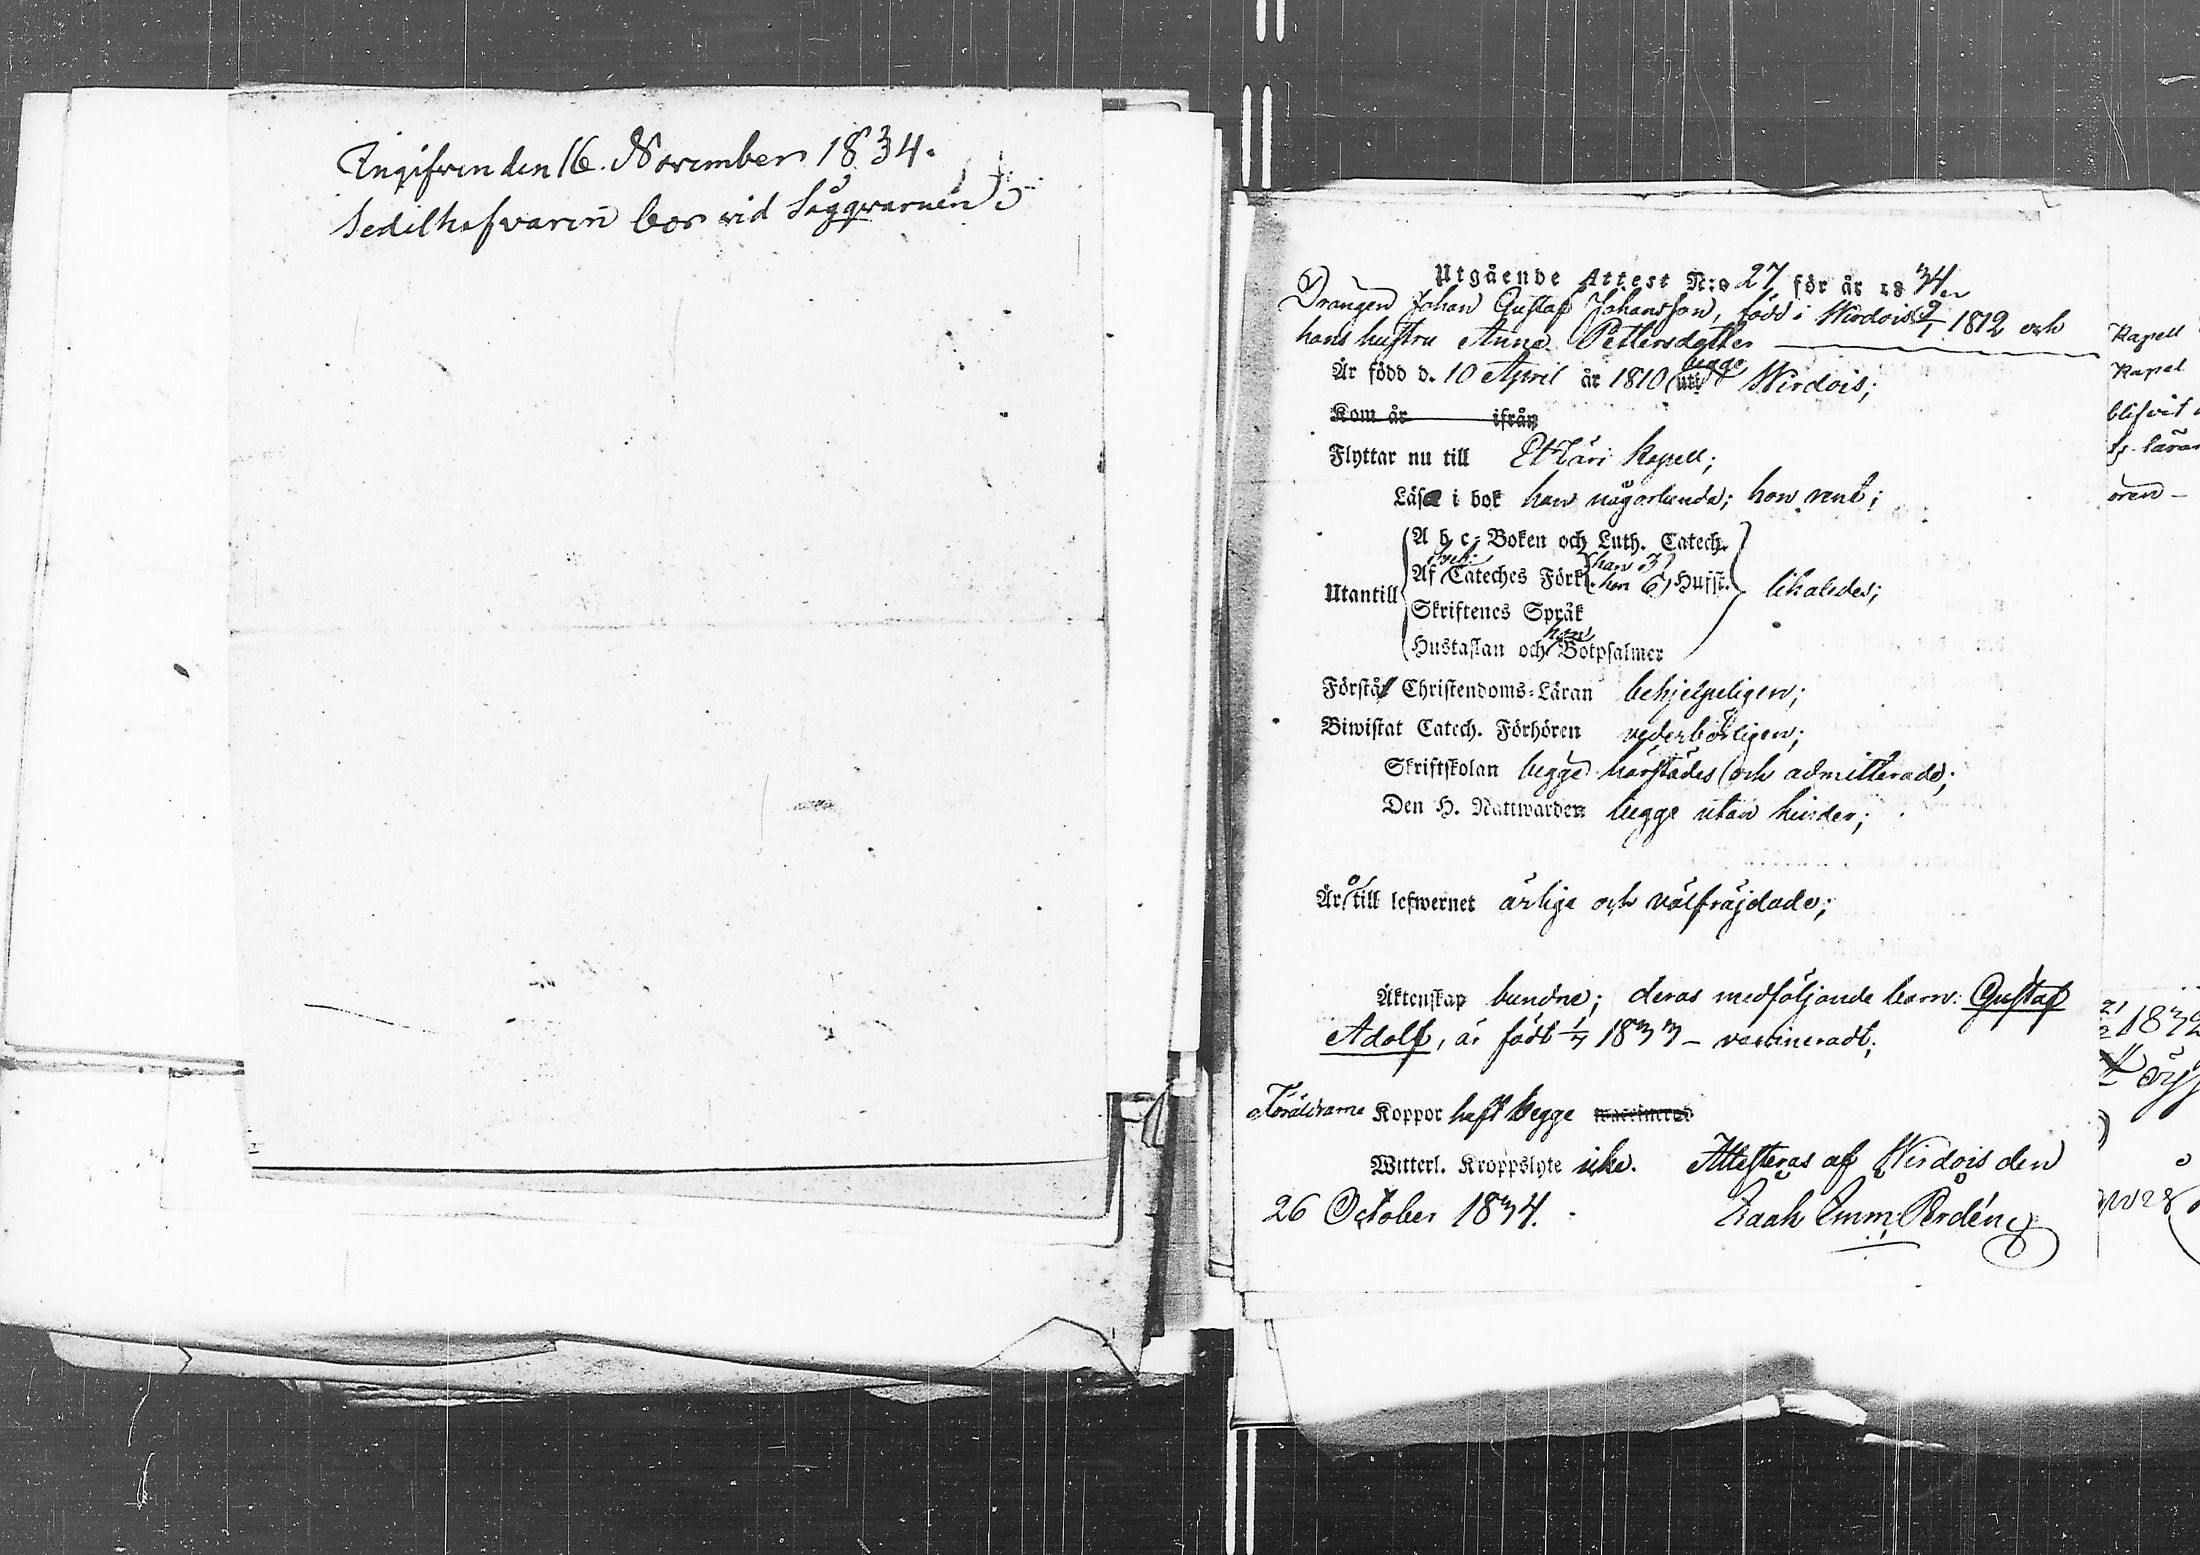 Ingifven den 16. November 1834.
Sedelhafvaren bor vid Sågqvarnen
Utgående Attest N:o 27 för år 1834
Drängen Johan Gustaf Johansson, född i Wirdois 9/1 1812 och
hans hustru Anna Pettersdotter
Är född d. 10 April år 1810 uti begge Wirdois;
Kom år ifrån
Flyttar nu till Etzäri Kapell;
Läsa i bok han någorlunda; hon rent;
A b c-Boken och Luth. Catech.
Af Cateches Förkl. han 3 hon 6 Hufst.
Utantill likaledes;
Skriftenes Språk
Hustaflan och hon Botpsalmer
Förstå Christendoms-Läran behjelpeligen;
Biwistat Catech. Förhören vederbörligen;
Skriftskolan begge härstädes och admitterade;
Den H. Nattwarden begge utan hinder;
Äro till lefwernet ärlige och välfräjdade;
Äktenskap bundne; deras medföljande barn: Gustaf
Adolf, är födt 1/7 1833 – vaccineradt;
Föräldrarne Koppor haft begge vaccinerad
Witterl. Kroppslyte icke. Attesteras af Wirdois den
26 October 1834.
Isaak Emm. Perdén
Kapell
Kapel
blifvit
oren –
1832